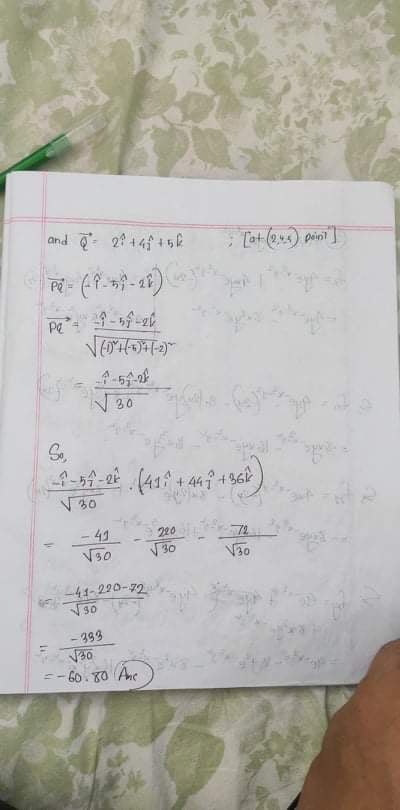 and Q⃗ = 2î + 4ĵ + 5k̂ ; [at (2,4,5) point]
P⃗Q = (-î - 5ĵ - 2k̂)
P⃗Q = (-î - 5ĵ - 2k̂) / √((-1)² + (-5)² + (-2)²)
= (-î - 5ĵ - 2k̂) / √30
So,
(-î - 5ĵ - 2k̂) / √30 . (41î + 44ĵ + 36k̂)
= -41/√30 - 220/√30 - 72/√30
= (-41-220-72) / √30
= -333 / √30
= -60.80 (Ans)